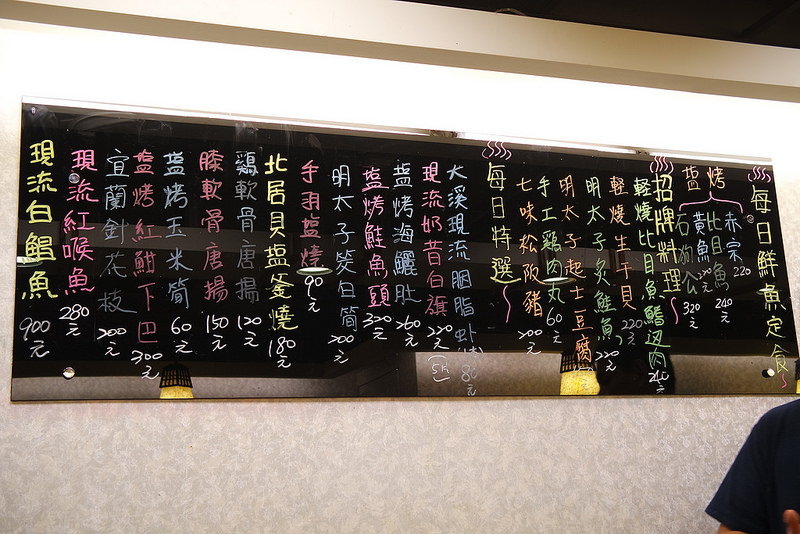 每日鮮魚定食
鹽烤
赤宗 220
比目魚 240
黃魚 220元
石狗公 320元
招牌料理
輕燒比目魚鰭边肉 240元
輕燒生干貝 220元
明太子炙鮭魚 220元
明太子起士豆腐
手工鷄肉丸 60元
七味松阪豬 200元
每日特選
大溪現流胭脂虾
現流奶昔白旗 220元
塩烤海鱺肚 260元
塩烤鮭魚頭 320元
明太子筊白筒 200元
手羽塩燒 90元
北居貝塩釜燒 180元
鷄軟骨唐揚 120元
膝軟骨唐揚 150元
塩烤玉米筒 60元
塩烤紅魽下巴 300元
宜蘭針花枝 200元
現流紅喉魚 280元
現流白鯧魚 900元